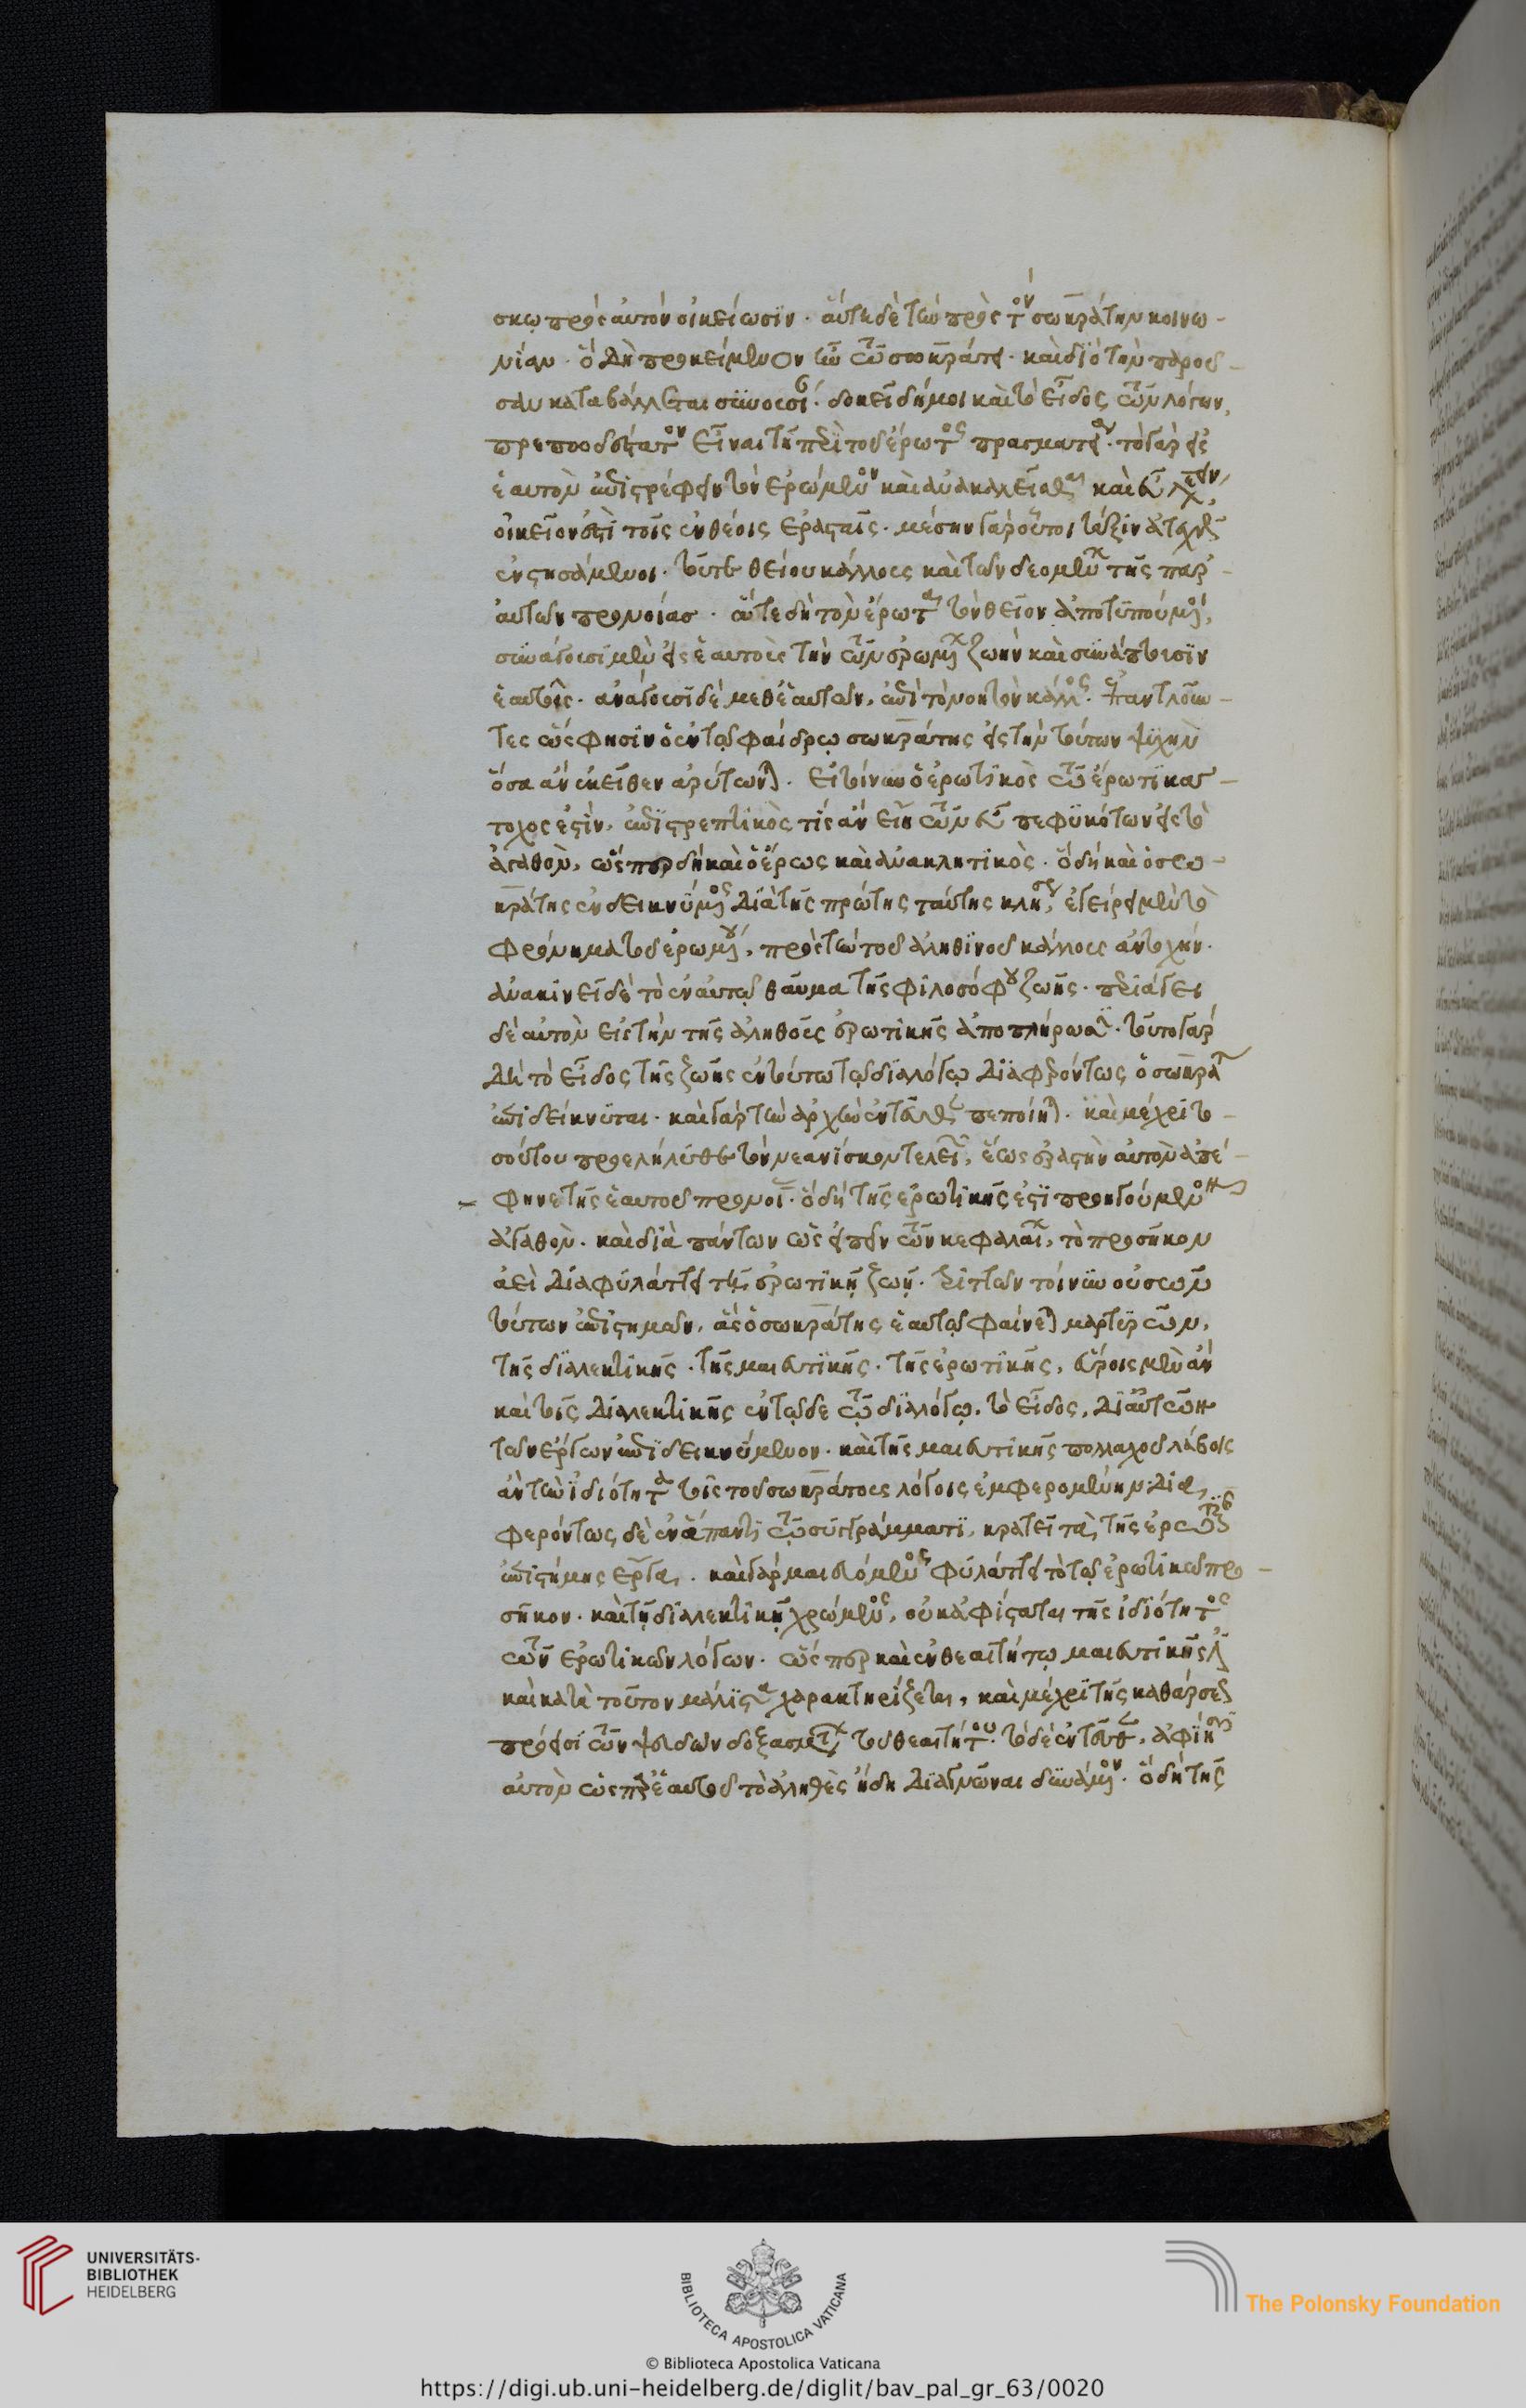 σκῳ πρὸς αὐτὸν οἰκείωσιν. αὕτη δὲ τὴν πρὸς τὸν σωκράτην κοινω-
νίαν. ὃ δὴ προκείμενον τῶ σωκράτει. καὶ διὸ τὴν παροῦ-
σαν καταβάλλεται συνουσί. δοκεῖ δή μοι καὶ τὸ εἶδος τῶν λόγων,
πρεπωδέστατον εἶναι τῆ περὶ τοῦ ἔρωτος πραγματεία. τὸ γὰρ εἰς
ἑαυτὸν ἐπιστρέφειν τὸν ἐρώμενον καὶ ἀνακαλεῖσθαι καὶ
οἰκεῖον ἐστὶ τοῖς ἐνθέοις ἐρασταῖς. μέσην γὰρ οὗτοι τάξιν
ἐνστησάμενοι. τοῦτε θείου κάλλους καὶ τῶν δεομένων τῆς παρ'
αὐτῶν προνοίας. ἅτε δὴ τὸν ἔρωτα τὸν θεῖον ἀποτυπούμενοι,
συνάγουσι μὲν εἰς ἑαυτοὺς τὴν τῶν ἐρωμένων ζωὴν καὶ συνάπτουσιν
ἑαυτοῖς. ἀνάγουσι δὲ μεθ' ἑαυτῶν, ἐπὶ τὸ νοητὸν κάλλος. ἐπαντλοῦν-
τες ὥς φησιν ὁ ἐν τῶ φαίδρῳ σωκράτης εἰς τὴν τούτων ψυχὴν
ὅσα ἂν ἐκεῖθεν ἀρύτωνται. εἰ τοίνυν ὁ ἐρωτικὸς τῶ ἔρωτι κά-
τοχος ἐστὶν, ἐπιστρεπτικὸς τίς ἂν εἴη τῶν εὖ πεφυκότων εἰς τὸ
ἀγαθὸν, ὥσπερ δὴ καὶ ὁ ἔρως καὶ ἀνακλητικὸς. ὃ δὴ καὶ ὁ σω-
κράτης ἐνδεικνύμενος διὰ τῆς πρώτης ταύτης κλήσεως, ἐγείρει μὲν τὸ
φρόνημα τοῦ ἐρωμένου, πρὸς τὴν τοῦ ἀληθινοῦ κάλλους ἀντοχήν.
ἀνακινεῖ δὲ τὸ ἐν αὐτῶ θαῦμα τῆς φιλοσόφου ζωῆς. περιάγει
δὲ αὐτὸν εἰς τὴν τῆς ἀληθοῦς ἐρωτικῆς ἀποπλήρωσιν. τοῦτο γὰρ
δὴ τὸ εἶδος τῆς ζωῆς ἐν τούτω τῶ διαλόγῳ διαφερόντως ὁ σωκράτης
ἐπιδείκνυται. καὶ γὰρ τὴν ἀρχὴν ἐντεῦθεν πεποίηται. καὶ μέχρι το-
σούτου προελήλυθε τὸν νεανίσκον τελεῖν, ἕως ἐραστὴν αὐτὸν ἀπέ-
φηνε τῆς ἑαυτοῦ προνοίας. ὃ δὴ τῆς ἐρωτικῆς ἐστὶ προηγούμενον
ἀγαθὸν. καὶ διὰ πάντων ὡς εἰπεῖν τῶν κεφαλαίων, τὸ προσῆκον
ἀεὶ διαφυλάττει τῆ ἐρωτικῆ ζωῆ. τριττῶν τοίνυν οὐσῶν
τούτων ἐπιστημῶν, ἃς ὁ σωκράτης ἑαυτῶ φαίνεται μαρτυρῶν,
τῆς διαλεκτικῆς. τῆς μαιευτικῆς. τῆς ἐρωτικῆς, εὕροις μὲν ἂν
καὶ τῆς διαλεκτικῆς ἐν τῶδε τῶ διαλόγῳ. τὸ εἶδος, δι' αὐτῶν
τῶν ἔργων ἐπιδεικνύμενον. καὶ τῆς μαιευτικῆς πολλαχοῦ λάβοις
ἂν τὴν ἰδιότητα τοῖς τοῦ σωκράτους λόγοις ἐμφερομένην. δια-
φερόντως δὲ ἐν ἅπαντι τῶ συγγράμματι, κρατεῖ τὰ τῆς ἐρωτικῆς
ἐπιστήμης ἔργα. καὶ γὰρ μαιευόμενος φυλάττει τὸ τῶ ἐρωτικῶ προ-
σῆκον. καὶ τῆ διαλεκτικῆ χρώμενος, οὐκ ἀφίσταται τῆς ἰδιότητος
τῶν ἐρωτικῶν λόγων. ὥσπερ καὶ ἐν θεαιτήτῳ μαιευτικῆς
καὶ κατὰ τοῦτον μάλιστα χαρακτηρίζεται, καὶ μέχρι τῆς καθάρσεως
πρόεισι τῶν ψευδῶν δοξασμάτων τοῦ θεαιτήτου. τὸ δὲ ἐντεῦθεν, ἀφίησιν
αὐτὸν ὡς περὶ ἑαυτοῦ τὸ ἀληθὲς ἤδη διαγνῶναι δυνάμενον. ὃ δὴ τῆς
UNIVERSITÄTS-
BIBLIOTHEK
HEIDELBERG
BIBLIOTECA APOSTOLICA VATICANA
The Polonsky Foundation
© Biblioteca Apostolica Vaticana
https://digi.ub.uni-heidelberg.de/diglit/bav_pal_gr_63/0020